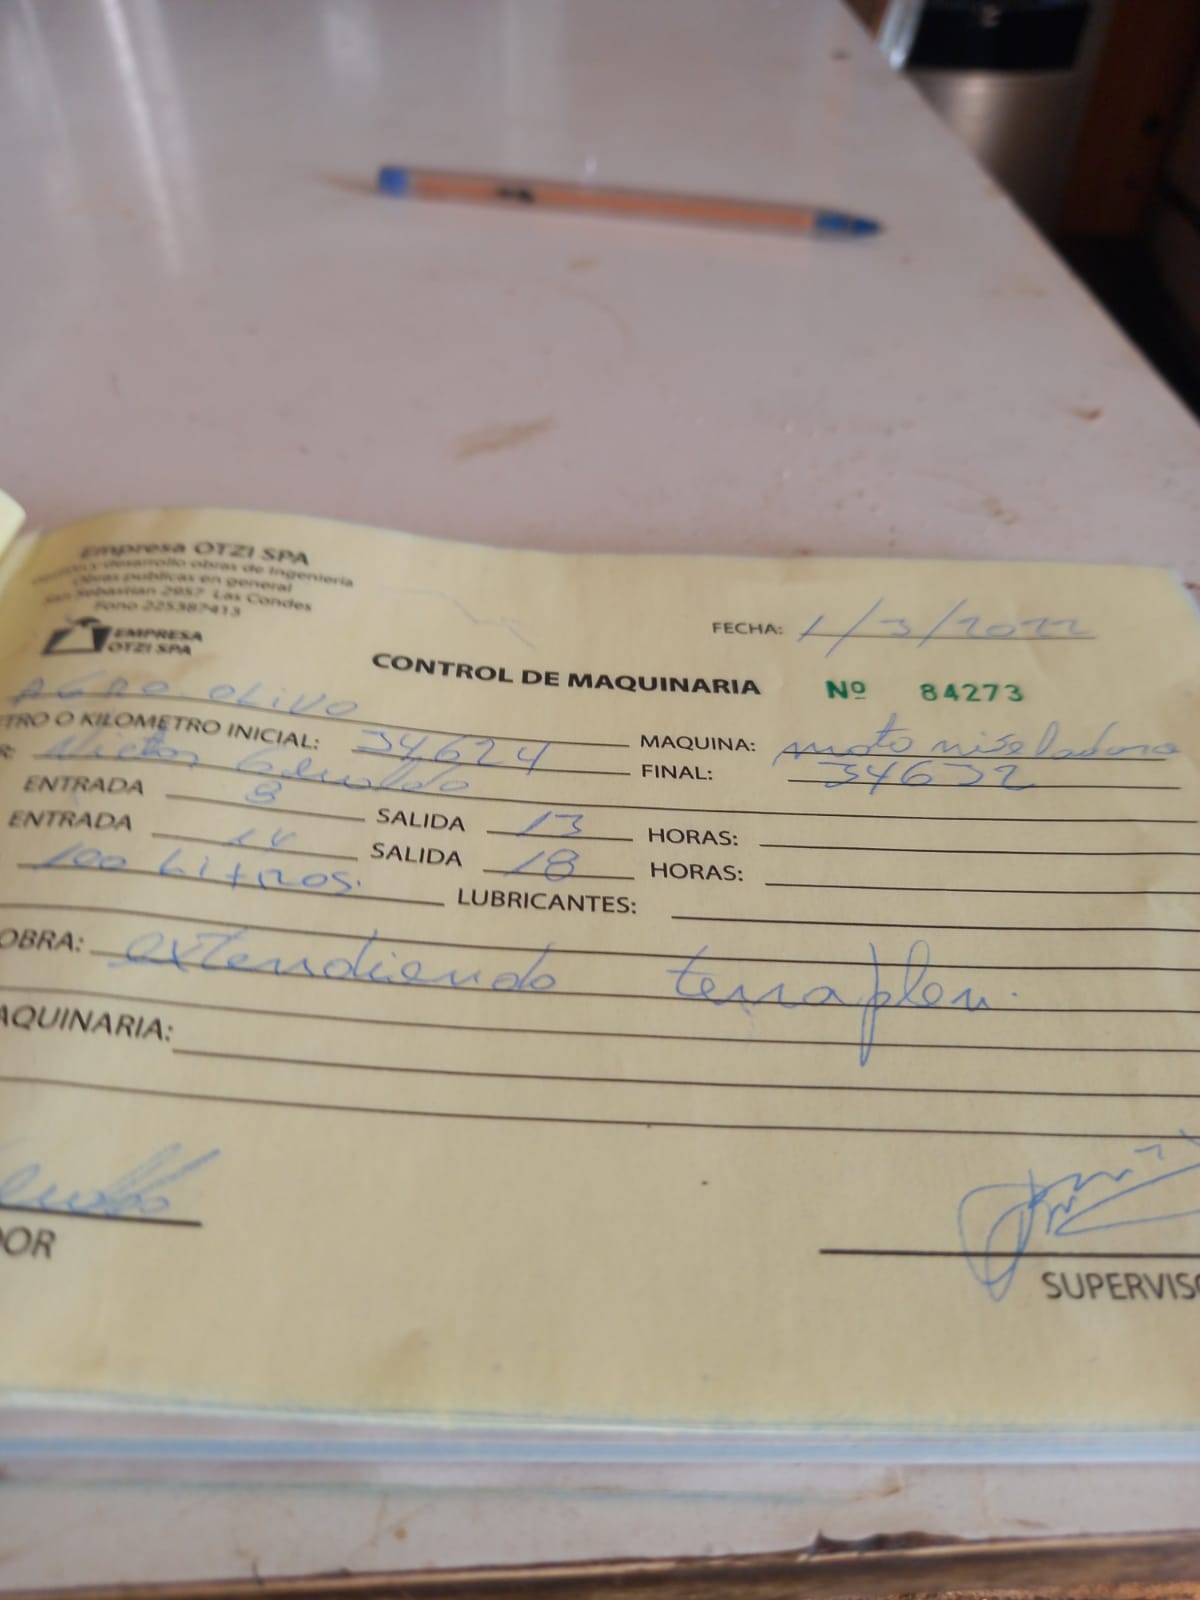 Empresa OTZI SPA
desarrollo obras de Ingeniería
Obras publicas en general
San Sebastian 2957 Las Condes
Fono 225387413
EMPRESA
OTZI SPA
FECHA: 1/3/2022
CONTROL DE MAQUINARIA Nº 84273
AGRO OLIVO
TRO O KILOMETRO INICIAL: 34624 MAQUINA: moto niseladora
R: FINAL: 34632
ENTRADA 8 SALIDA 13 HORAS:
ENTRADA 14 SALIDA 18 HORAS:
100 Litros. LUBRICANTES:
OBRA: extendiendo terraplen.
AQUINARIA:
DOR
SUPERVISO